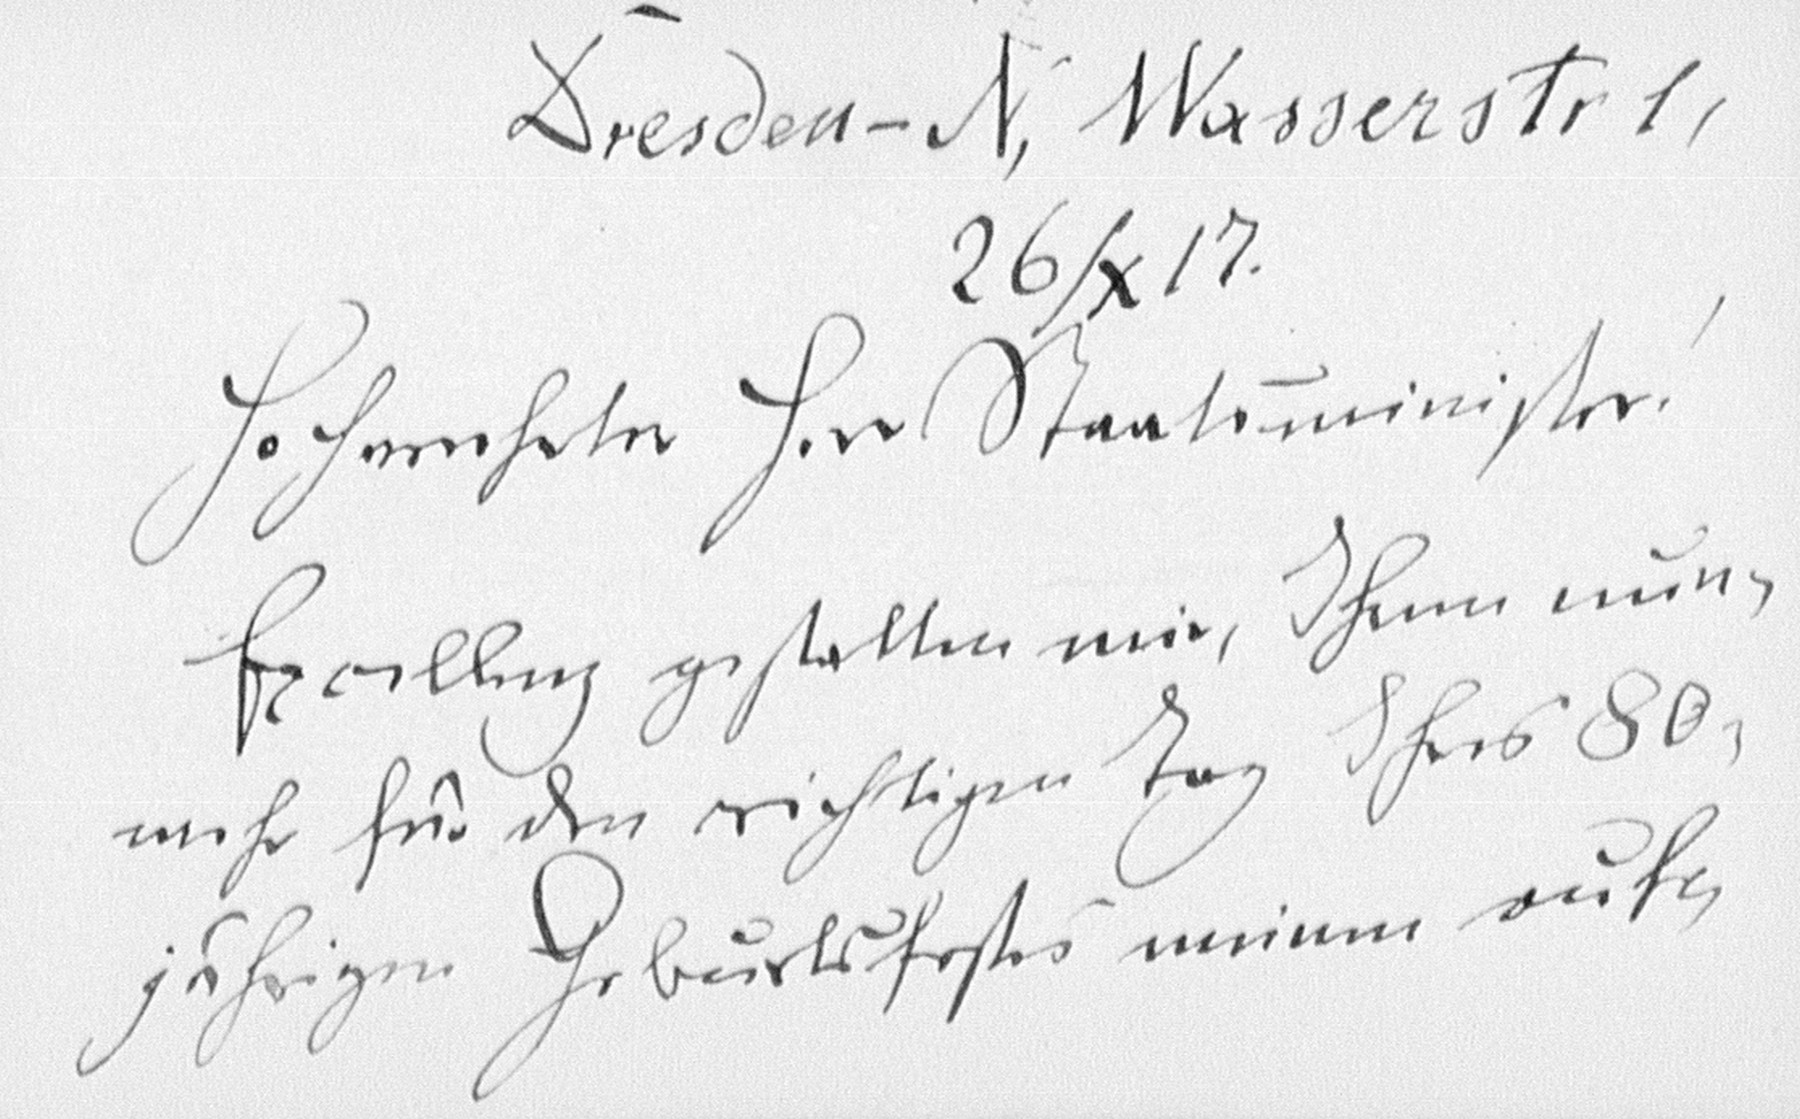 Dresden-N, Wasserstr 1,
26/X 17.
Hochverehrter Herr Staatsminister!
Excellenz gestatten mir, Ihnen nun-
mehr für den richtigen Tag Ihres 80-
jährigen Geburtsfestes meinen auf-